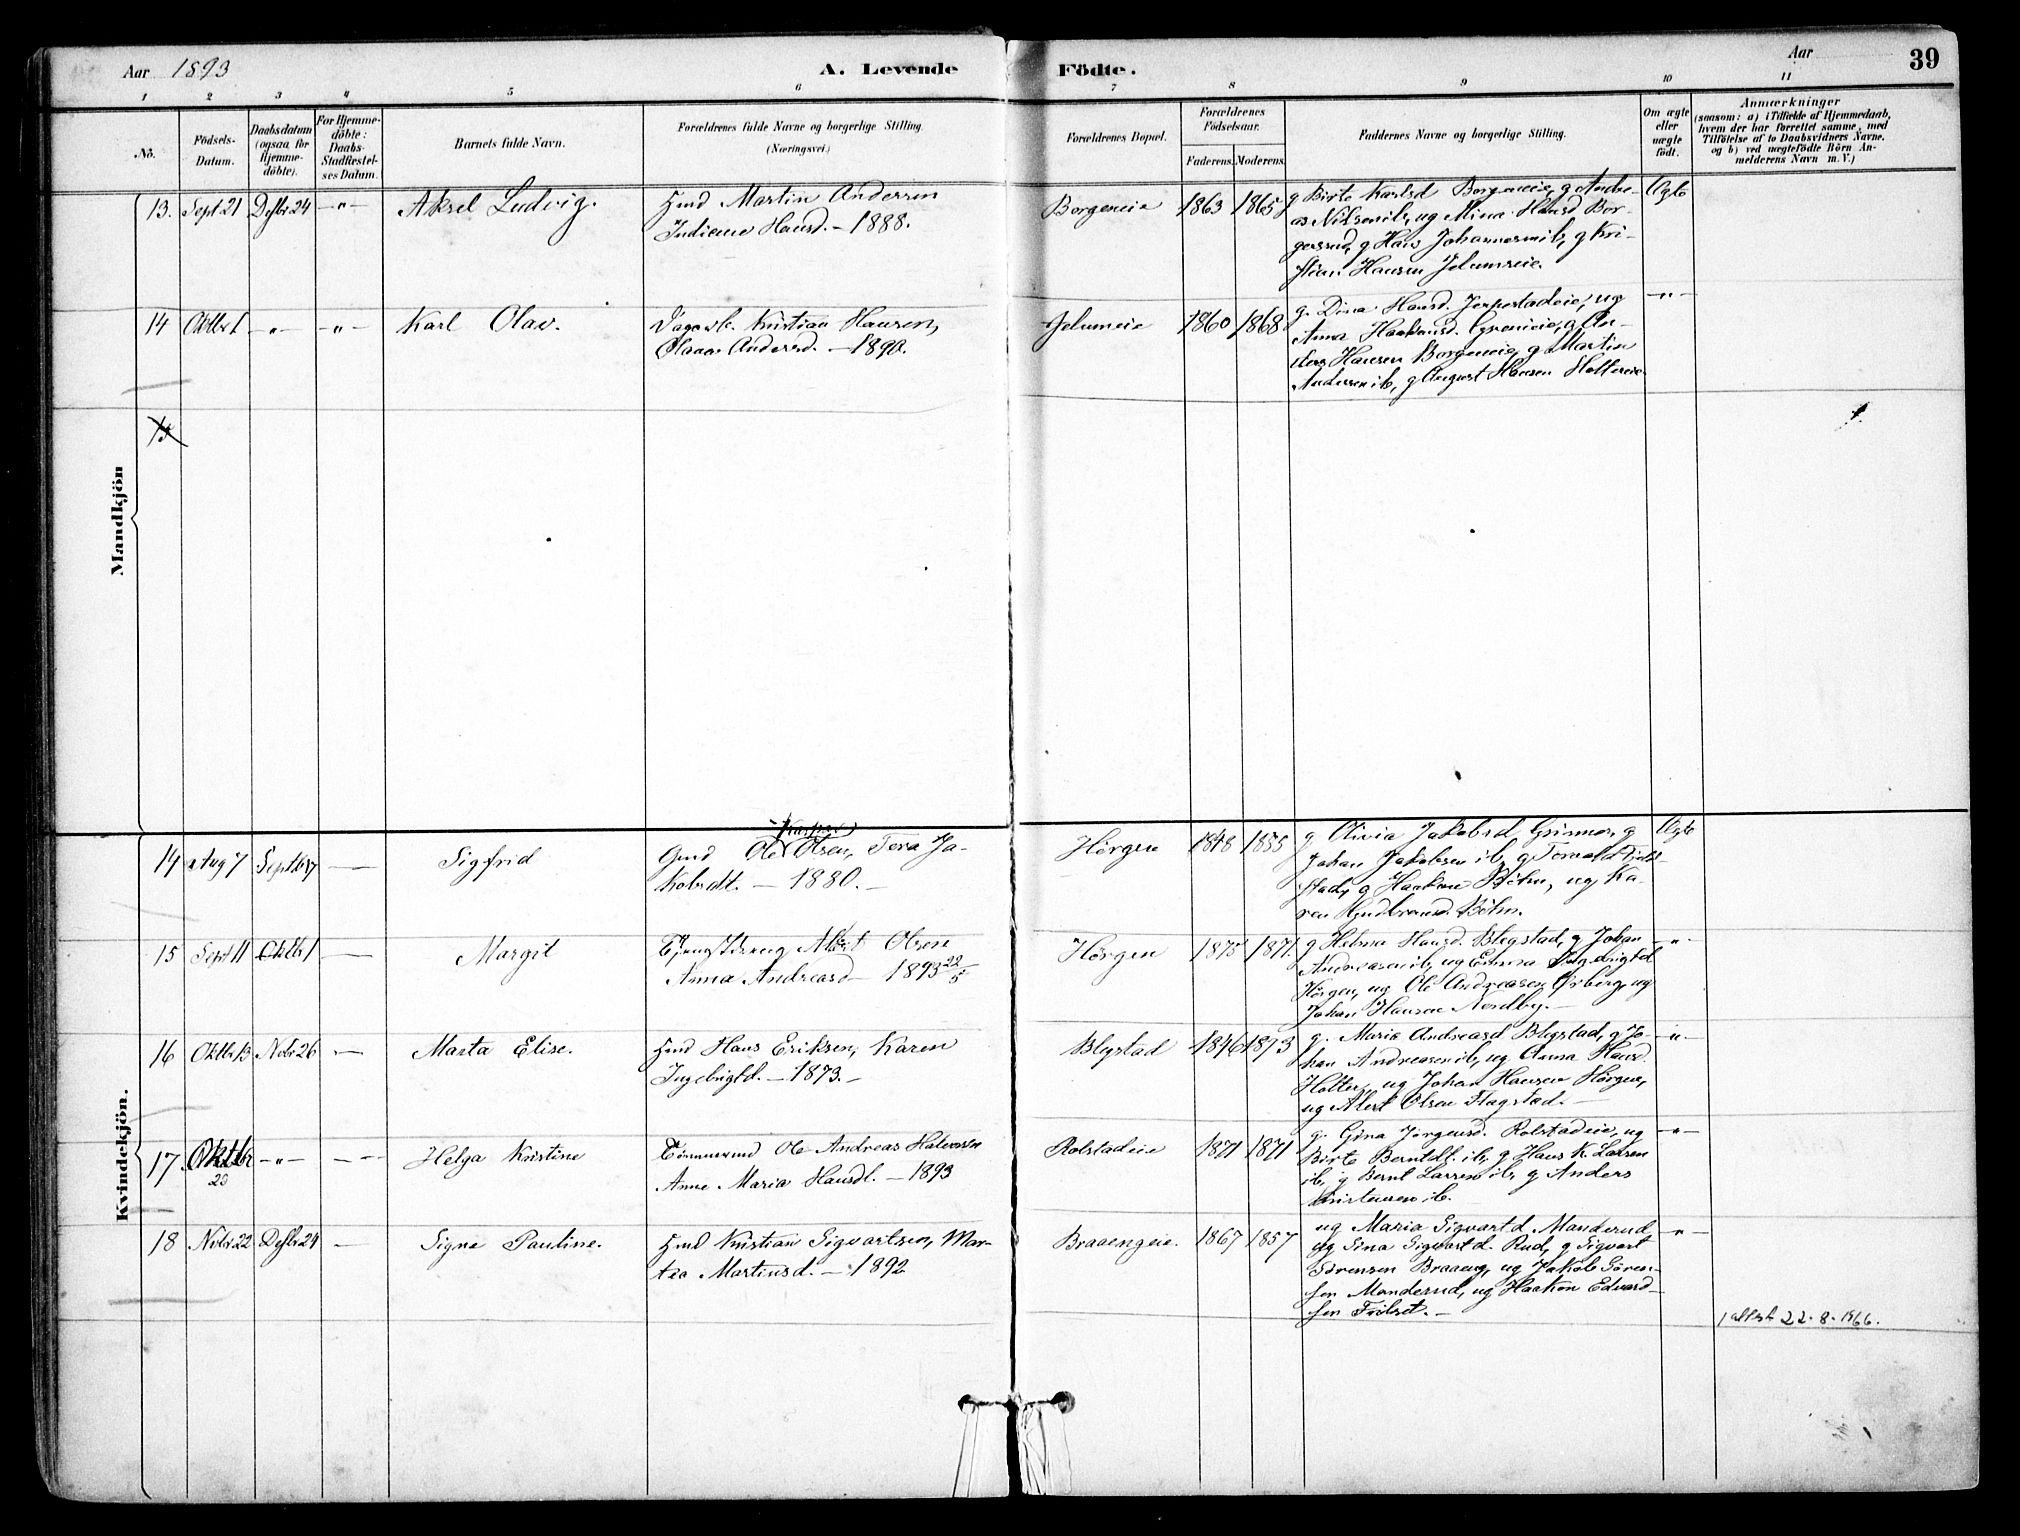 Aar 1893
A. Levende
Födte.
Aar
39
1 2 3 4 5 6 7 8 9 10 11
No.
Födsels-
Datum.
Daabsdatum
(ogsaa for
Hjemme-
döbte).
For Hjemme-
döbte:
Daabs-
Stadfæstel-
ses Datum.
Barnets fulde Navn.
Forældrenes fulde Navne og borgerlige Stilling.
(Næringsvei.)
Forældrenes Bopæl.
Forældrenes
Födselsaar.
Faderens. Moderens.
Faddernes Navne og borgerlige Stilling.
Om ægte
eller
uægte
födt.
Anmærkninger
(saasom: a) i Tilfælde af Hjemmedaab,
hvem der har forrettet samme, med
Tilföielse af to Daabsvidners Navne.
og b) ved uægtefödte Börn An-
melderens Navn m. V.)
Mandkjön
13. Sept 21 Desbr 24 -"- Aksel Ludvig.
Hmd Martin Andersen
Indiane Hansd. - 1888.
Borgeneie 1863 1865
g Birte Karlsd Borgeneie, g Andre-
as Nilsen ib, ug Mina Hansd Bor-
gersrud, g Hans Johannesen ib, g Kri-
stian Hansen Jelumeie.
Ægte
14 Oktbr 1 -"- -"- Karl Olav.
Dagarb. Kristian Hansen,
Olava Andersd. - 1890.
Jelumeie 1860 1868
g. Dina Hansd. Jerpestadeie, ug
Anna Haakensd. , g An-
ders Hansen Borgeneie, g Martin
Andersen ib, g August Hansen Holtereie
-"-
15
Kvindekjön.
14 Aug 7 Sept 17 - Sigfrid
Kasper
Gmd Ole Olsen, Tera Ja-
kobsdt. - 1880. -
Hörgen 1848 1855
g Olivia Jakobsd Grinner, g
Johan Jakobsen ib, g Torvald Fjeld-
stad, g Haaken Böhn, ug Ka-
ren Gudbrandsd. Böhn.
Ægte
15 Sept 11 Oktbr 1 - Margit
Albert Olsen
Anna Andreasd - 1893 22/5
Hörgen 1875 1871.
g Helma Hansd. Blegstad, g Johan
Andreasen ib, ug Emma Ingebrigtd
Hörgen, ug Ole Andreasen Örberg, ug
Johan Hansen Nordby. -
-"-
16 Oktbr 13 Novbr 26 - Marta Elise.
Hmd Hans Eriksen, Karen
Ingebrigtd. - 1873. -
Blegstad 1846 1873
g. Maria Andreasd Blegstad, g Jo-
han Andreasen ib, ug Anna Hansd.
Holter, ug Johan Hansen Hörgen,
ug Albert Olsen Flagstad. -
-"-
17 Oktbr
20 -"- - Helga Kristine
Tömmermd Ole Andreas Halvorsen
Anne Maria Hansdt. - 1893
Rolstadeie 1871 1871
g. Gina Jörgensd. Rolstadeie, ug
Birte Berntdt. ib, g Hans K. Larsen
ib, g Bernt Larsen ib, g Anders
Kristensen ib.
-"-
18 Novbr 22 Desbr 24 - Signe Pauline.
Hmd Kristian Sigvartsen, Mar-
tea Martinsd. - 1892
Braaengeie. 1867 1857
ug Maria Sigvartd Manderud
ug Gina Sigvartd. Rud, g Sigvart
Sörensen Braaeng, ug Jakob Sören-
sen Manderud, ug Haakon Edvard-
sen Fribset. -
-"-
1 attest 22-8-1966.